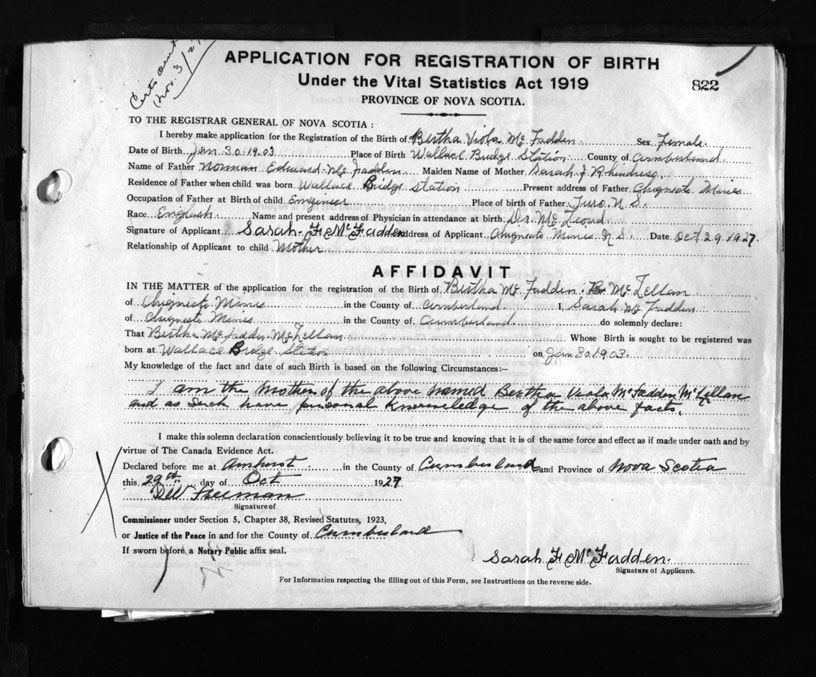 Certs sent
Nov. 3/27
APPLICATION FOR REGISTRATION OF BIRTH
Under the Vital Statistics Act 1919
822
PROVINCE OF NOVA SCOTIA.
TO THE REGISTRAR GENERAL OF NOVA SCOTIA :
I hereby make application for the Registration of the Birth of Bertha Viola McFadden Sex Female
Date of Birth Jan 30 1903 Place of Birth Wallace Bridge Station County of Cumberland
Name of Father Norman Edward McFadden Maiden Name of Mother Sarah J
Residence of Father when child was born Wallace Bridge Station Present address of Father Chignecto Mines
Occupation of Father at Birth of child Place of birth of Father Truro N.S.
Race English Name and present address of Physician in attendance at birth Dr. McLeod
Signature of Applicant Sarah F McFadden Address of Applicant Chignecto Mines N.S. Date Oct 29 1927
Relationship of Applicant to child Mother
AFFIDAVIT
IN THE MATTER of the application for the registration of the Birth of Bertha McFadden McLellan
of Chignecto Mines in the County of Cumberland I, Sarah McFadden
of Chignecto Mines in the County of Cumberland do solemnly declare:
That Bertha McFadden McLellan Whose Birth is sought to be registered was
born at Wallace Bridge Station on Jan 30 1903
My knowledge of the fact and date of such Birth is based on the following Circumstances:—
I am the Mother of the above named Bertha Viola McFadden McLellan
and as such have personal knowledge of the above facts.
I make this solemn declaration conscientiously believing it to be true and knowing that it is of the same force and effect as if made under oath and by
virtue of The Canada Evidence Act.
Declared before me at Amherst in the County of Cumberland and Province of Nova Scotia
this 29th day of Oct 1927
Freeman
Signature of
Commissioner under Section 5, Chapter 38, Revised Statutes, 1923,
or Justice of the Peace in and for the County of Cumberland
If sworn before a Notary Public affix seal.
Sarah F McFadden
Signature of Applicant.
For Information respecting the filling out of this Form, see Instructions on the reverse side.